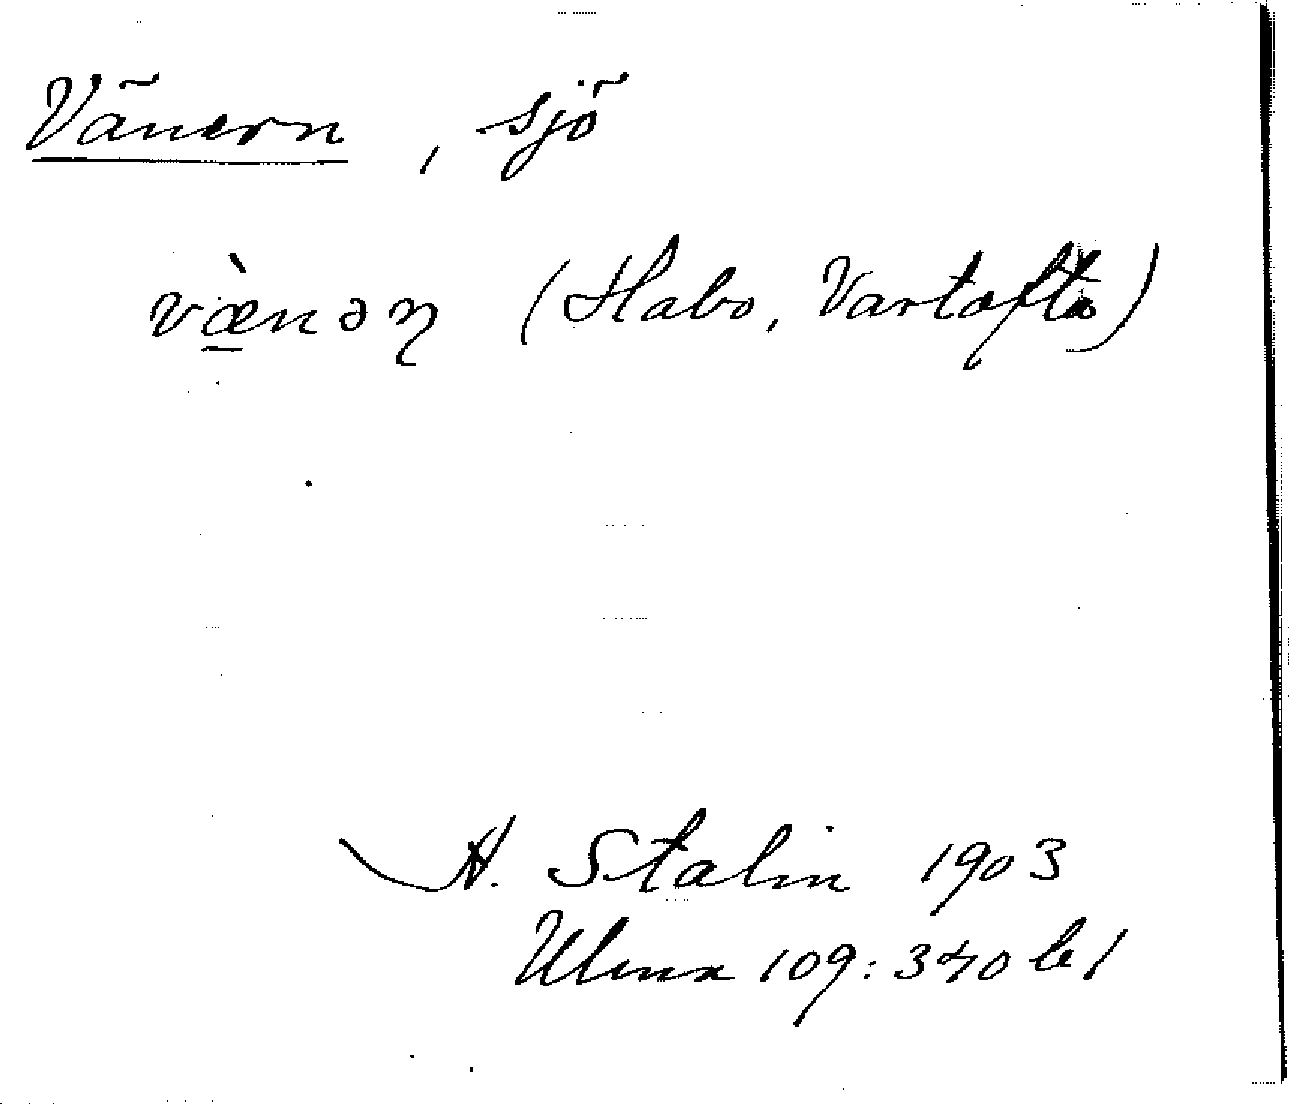 Vänern, sjö
væ̠̀nəη (Habo, Vartofta)
A. Stalin 1903
Ulma 109:340 bl